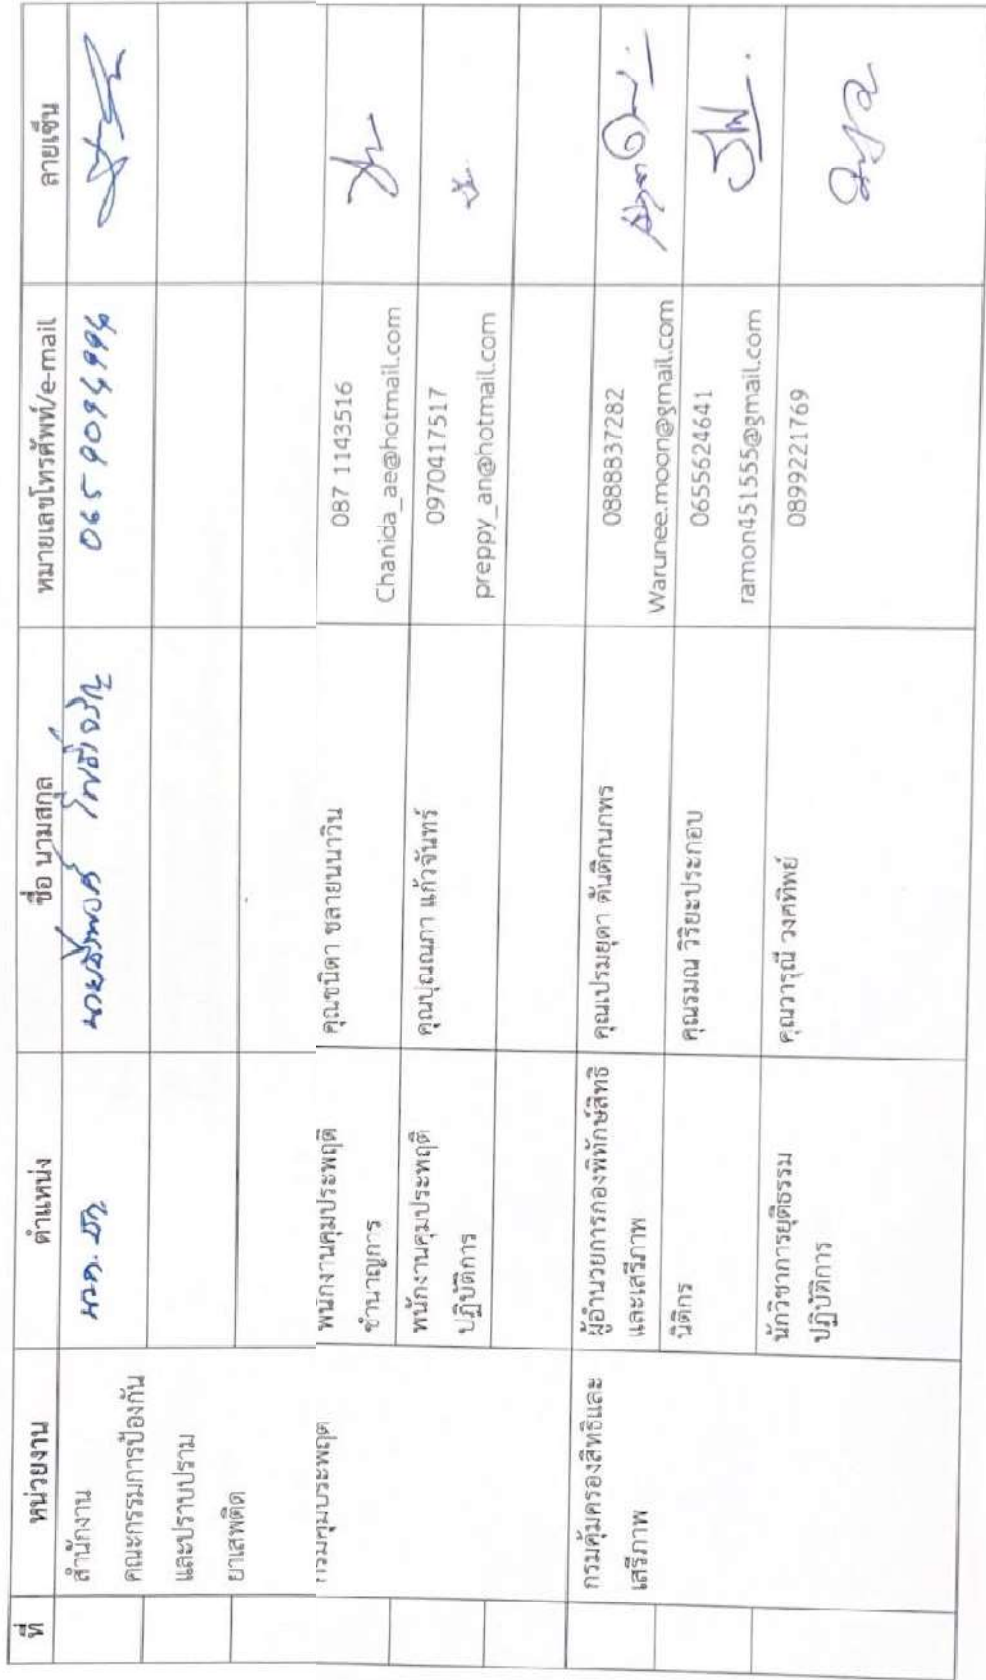 ที่ หน่วยงาน ตำแหน่ง ชื่อ นามสกุล หมายเลขโทรศัพท์/e-mail ลายเซ็น
สำนักงาน
คณะกรรมการป้องกัน
และปราบปราม
ยาเสพติด
065 9094994
กรมคุมประพฤติ
พนักงานคุมประพฤติ
ชำนาญการ
คุณชนิดา ชลายนนาวิน
087 1143516
Chanida_ae@hotmail.com
พนักงานคุมประพฤติ
ปฏิบัติการ
คุณปุณณภา แก้วจันทร์
0970417517
preppy_an@hotmail.com
กรมคุ้มครองสิทธิและ
เสรีภาพ
ผู้อำนวยการกองพิทักษ์สิทธิ
และเสรีภาพ
คุณเปรมยุดา ตันติกนกพร
0888837282
Warunee.moon@gmail.com
นิติกร
คุณรมณ วิริยะประกอบ
0655624641
ramon451555@gmail.com
นักวิชาการยุติธรรม
ปฏิบัติการ
คุณวารุณี วงศทิพย์
0899221769